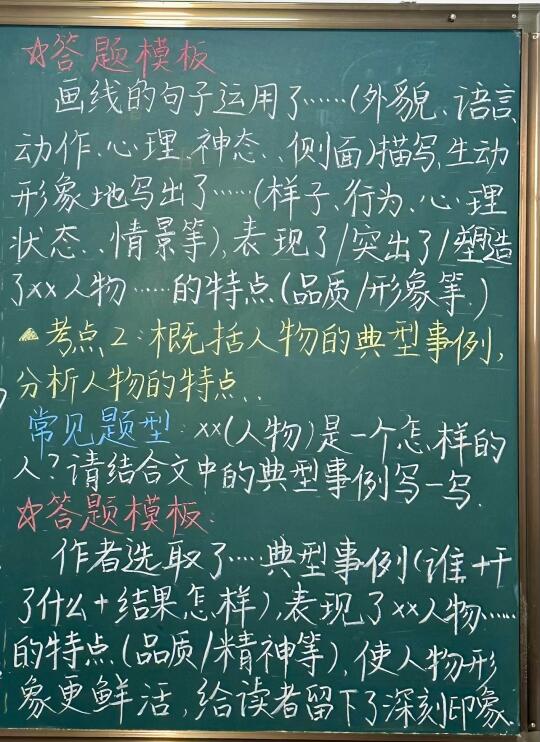 ☆答题模板
画线的句子运用了……(外貌、语言、
动作、心理、神态、侧面)描写,生动
形象地写出了……(样子、行为、心理
状态、情景等),表现了/突出了/塑造
了xx人物……的特点(品质/形象等.)
考点2:概括人物的典型事例,
分析人物的特点..
常见题型:xx(人物)是一个怎样的
人?请结合文中的典型事例写一写.
☆答题模板:
作者选取了……典型事例(谁+干
了什么+结果怎样),表现了xx人物……
的特点(品质/精神等),使人物形
象更鲜活,给读者留下了深刻印象.